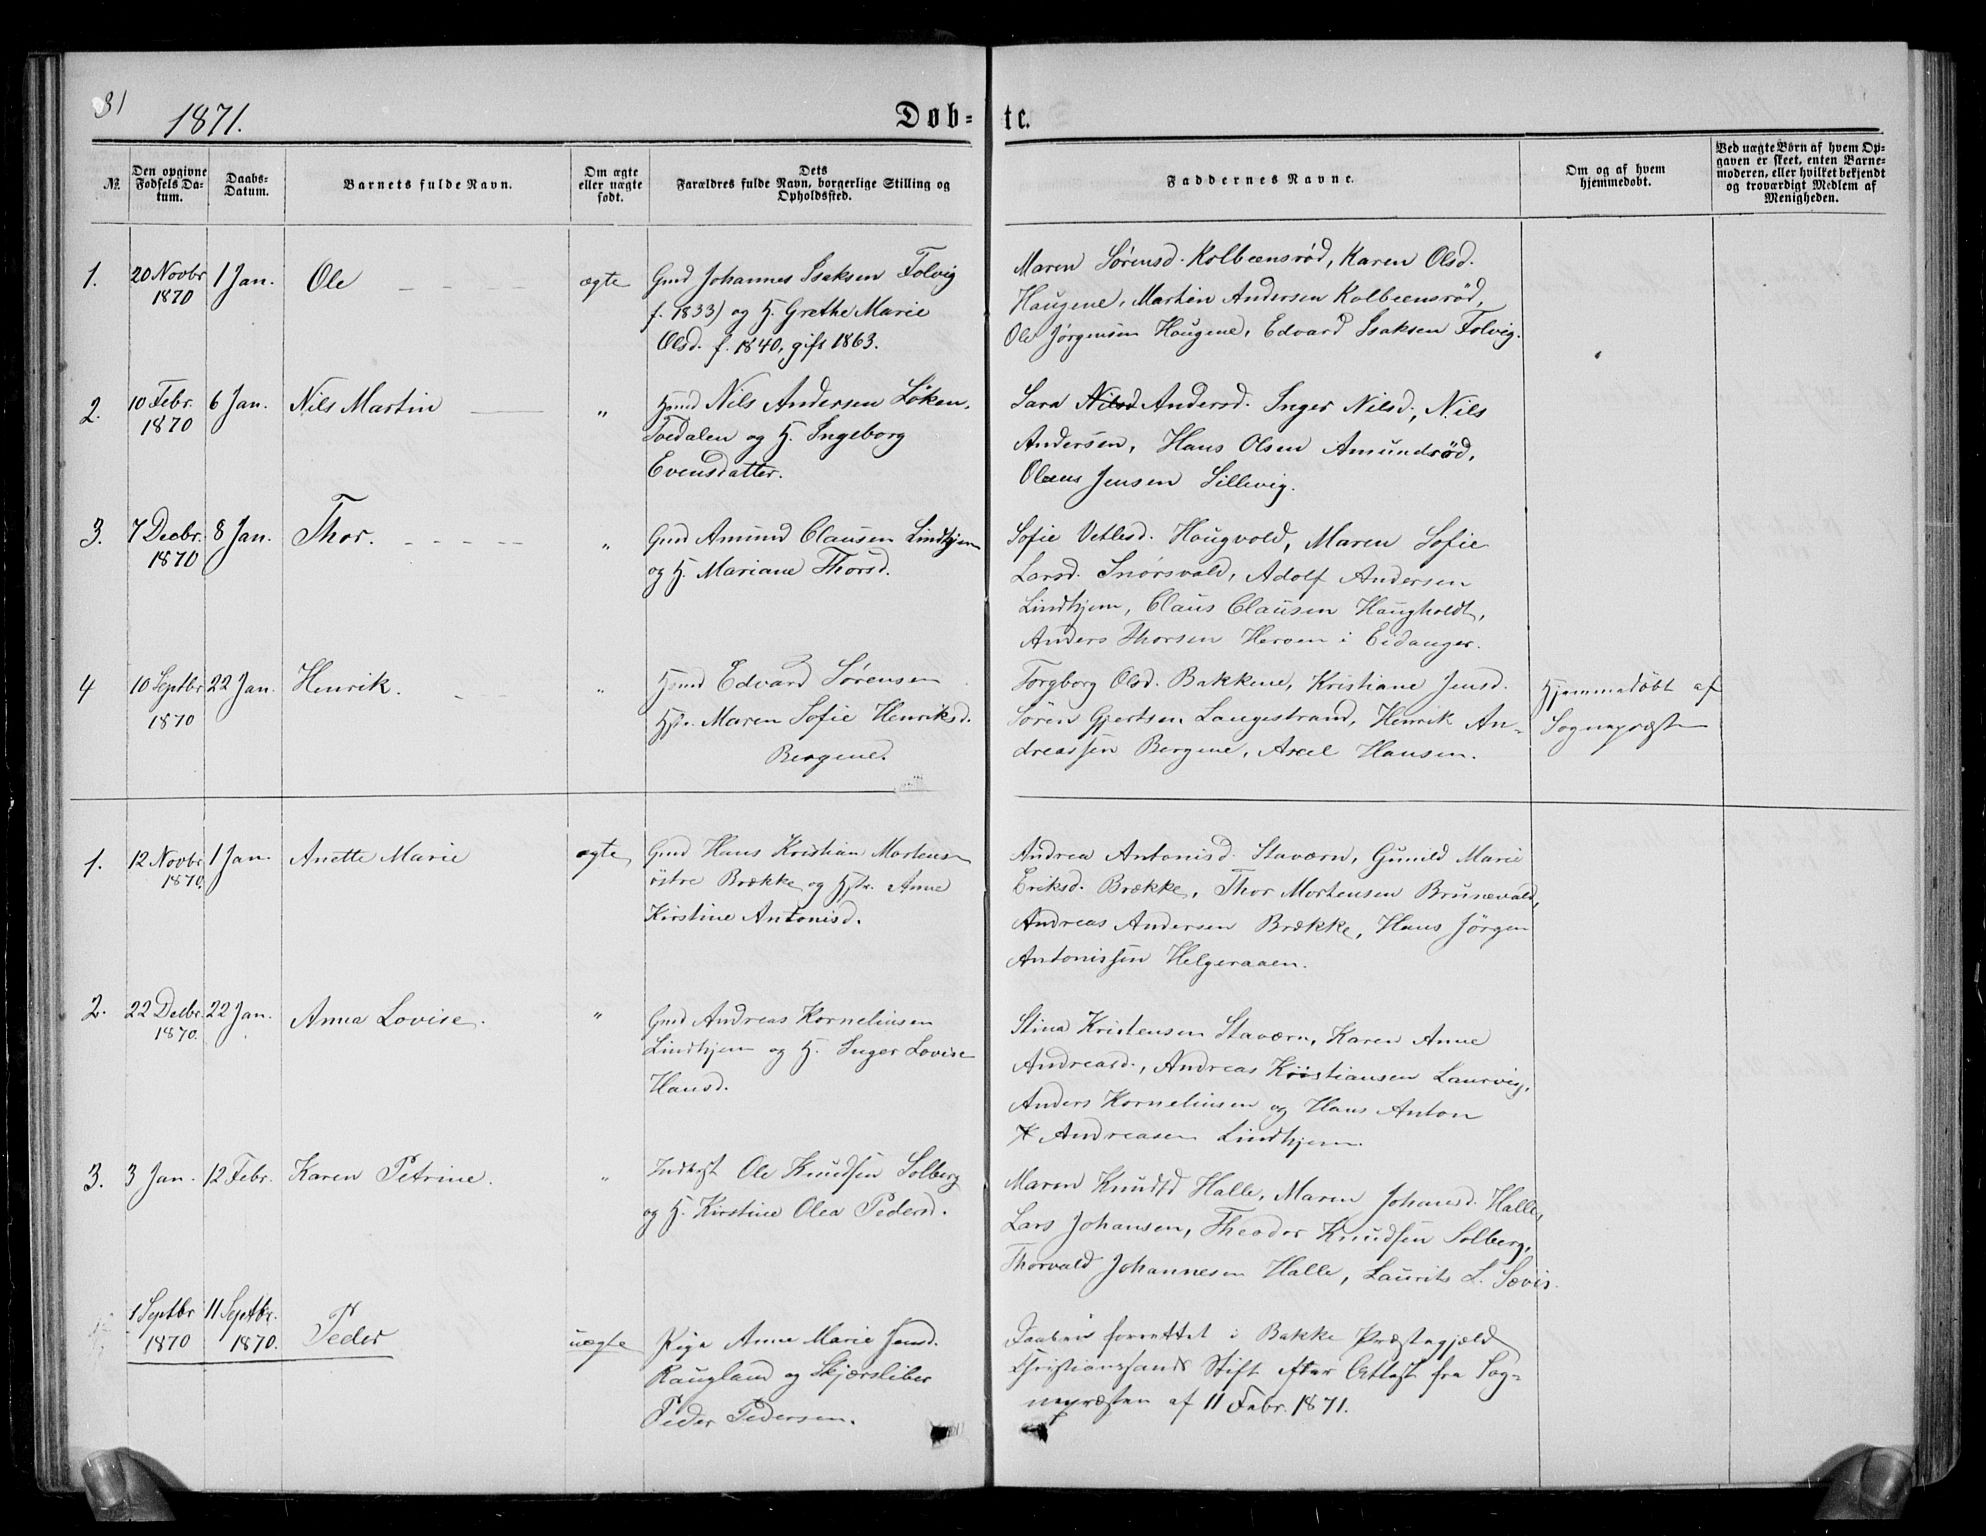 81
1871.
Døb-
te.
№.
Den opgivne
Fødsels Da-
tum.
Daabs-
Datum.
Barnets fulde Navn.
Om ægte
eller uægte
født.
Dets
Forældres fulde Navn, borgerlige Stilling og
Opholdssted.
Faddernes Navne.
Om og af hvem
hjemmedøbt.
Ved uægte Børn af hvem Op-
gaven er skeet, enten Barne-
moderen, eller hvilket bekjendt
og troværdigt Medlem af
Menigheden.
1.
20 Novbr
1870
1 Jan.
Ole
ægte
Gmd Johannes Isaksen Folvig
f. 1833) og H. Grethe Marie
Olsd. f. 1840, gift 1863.
Maren Sørensd. Kolbeensrød, Karen Olsd.
Haugene, Martin Andersen Kolbeensrød,
Ole Jørgensen Haugene, Edvard Isaksen Folvig.
2.
10 Febr.
1870
6 Jan.
Nils Martin
"
Hsmd Nils Andersen Löken,
Tvedalen og H. Ingeborg
Evensdatter.
Sara Nilsd Andersd. Inger Nilsd., Nils
Andersen, Hans Olsen Amundsrød,
Olaus Jensen Sillevig.
3.
7 Decbr.
1870
8 Jan.
Thor.
"
Gmd Amund Clausen Lindhjem
og H. Mariane Thorsd.
Sofie Vetlesd. Haugvold, Maren Sofie
Larsd. Snørsvald, Adolf Andersen
Lindhjem, Claus Clausen Haugholdt,
Anders Thorsen Heroen i Eidanger.
4
10 Septbr
1870
22 Jan.
Henrik.
"
Hsmd Edvard Sørensen
Hstr. Maren Sofie Henriksd.
Bergene.
Torgborg Olsd. Bakkene, Kristiane Jensd.
Sören Gjertsen Langestrand, Henrik An-
dreassen Bergene, Axel Hansen.
Hjemmedøbt af
Sognepræsten
1.
12 Novbr
1870.
1 Jan.
Anette Marie
ægte
Gmd Hans Kristian Mortensen
östre Brække og Hstr. Anne
Kirstine Antonisd.
Andrea Antonisd. Staværn, Gunild Marie
Eriksd. Brække, Thor Mortensen Brunevald,
Andreas Andersen Brække, Hans Jörgen
Antonissen Helgeraaen.
2.
22 Decbr.
1870.
22 Jan.
Anna Lovise.
"
Gmd Andreas Kornelinsen
Lindhjem og H. Inger Lovise
Hansd.
Stina Kristensen Staværn, Karen Anne
Andreasd., Andreas Kristiansen Laurvig,
Anders Kornelinsen og Hans Anton
Andreasen Lindhjem.
3.
3 Jan.
12 Febr.
Karen Petrine.
"
Indhst Ole Knudsen Solberg
og H. Kirstine Olea Pedersd.
Maren Knudsd Halle, Maren Johansd. Halle,
Lars Johansen, Theodor Knudsen Solberg,
Thorvald Johannesen Halle, Laurits L. Sævig.
1 Septbr
1870
11 Septbr.
1870.
Peder
uægte
Pige Anne Marie Jensd.
Raugland og Skjærsliber
Peder Pedersen.
Daaben forrettet i Bakke Præstegjeld
Christianssands Stift efter Attest fra Sog-
nepræsten af 11 Febr. 1871.